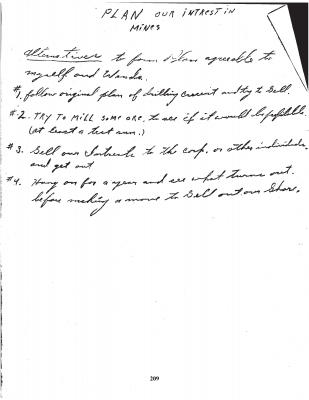 PLAN OUR INTREST IN
MINES
Alternatives to form Plan agreeable to
myself and Wanda.
#1. follow original plan of drilling Crescent and try to Sell.
#2. TRY TO MILL SOME ORE. to see if it would be profitable.
(at least a test run.)
#3. Sell our Intrests to the Corp. or other individuals
and get out
#4. Hang on for a year and see what turns out.
before making a move to Sell out our Share.
209